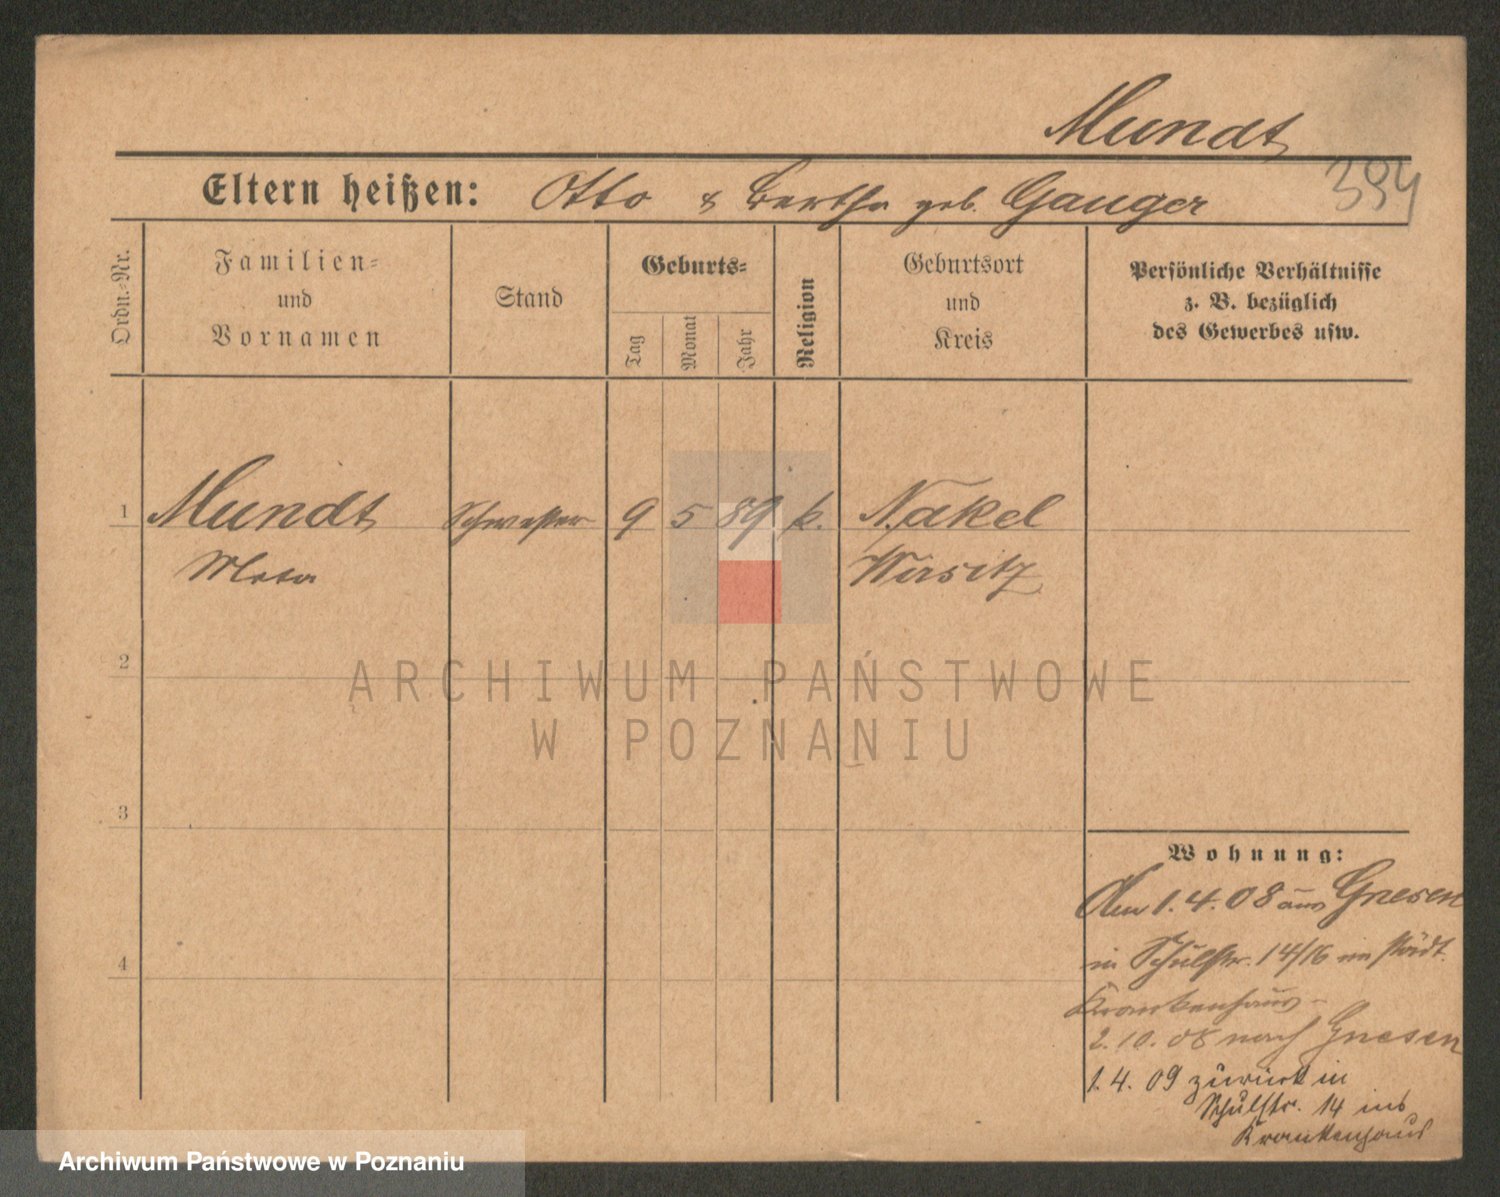 Mundt
394
Eltern heißen: Otto & Bertha geb. Gauger
Ordn.-Nr.
Familien-
und
Vornamen
Stand
Geburts-
Tag
Monat
Jahr
Religion
Geburtsort
und
Kreis
Persönliche Verhältnisse
z. B. bezüglich
des Gewerbes usw.
1 Mundt Schwester 9 5 89 k. Nakel
Meta Wirsitz
2
ARCHIWUM PAŃSTWOWE
W POZNANIU
3
Wohnung:
Am 1.4.08 aus Gnesen
4
in Schulstr. 14/16 im städt.
Krankenhaus -
2.10.08 nach Gnesen
1.4.09 zurück in
Schulstr. 14 ins
Krankenhaus
Archiwum Państwowe w Poznaniu